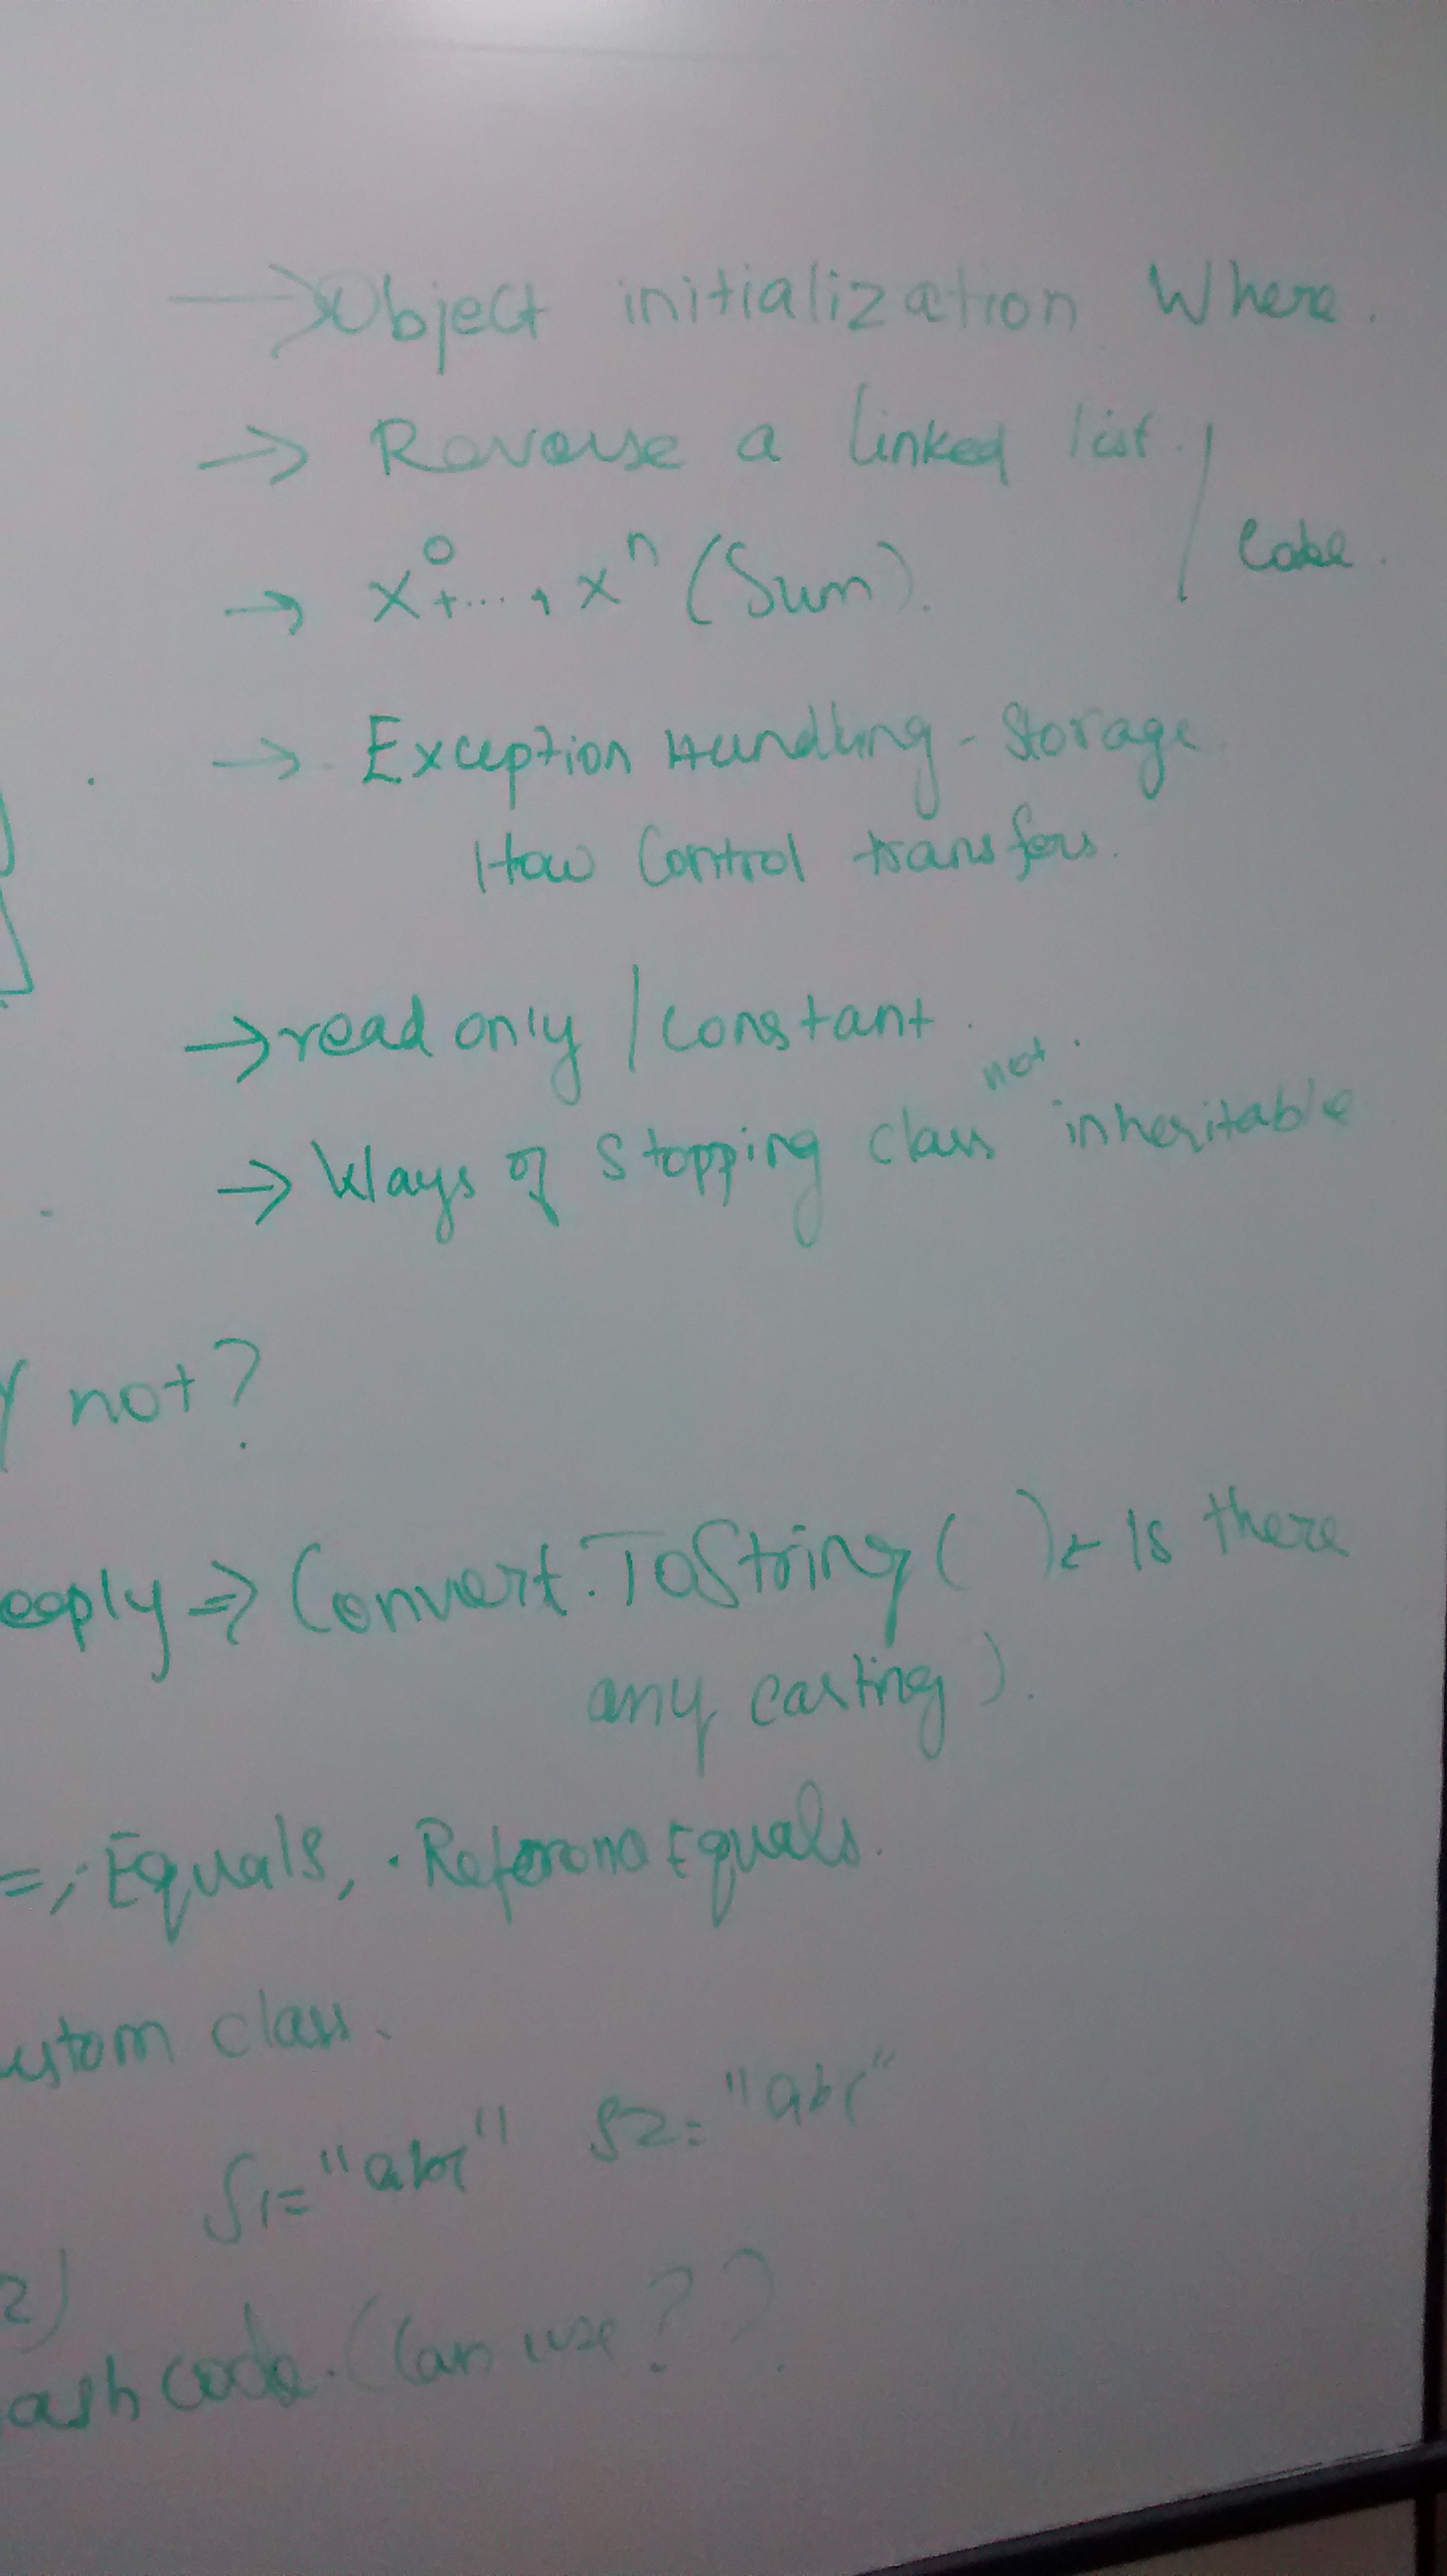 → Object initialization Where.
→ Reverse a linked list.
Code.
→ x⁰+...+ xⁿ (Sum).
→ Exception Handling - Storage
How Control transfers.
→ read only / constant.
not
→ Ways of stopping class inheritable
not?
eeply ⇒ Convert.ToString( ) ← Is there
any casting).
=, .Equals, .ReferenceEquals.
ustom class.
S1= "abc" S2= "abc"
2)
ash code. (Can use??